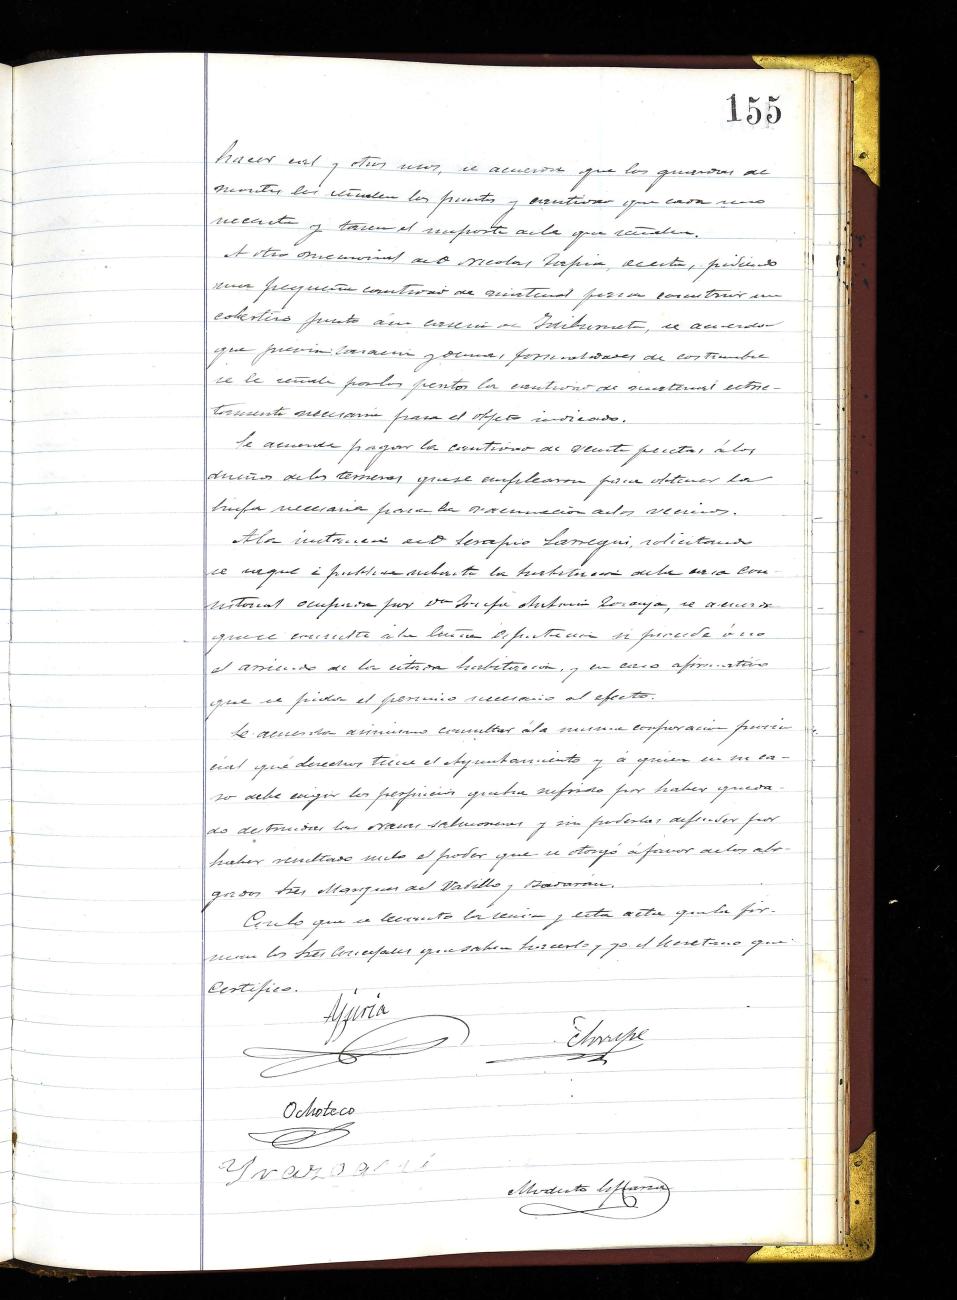 155
hacer cal y otros usos, se acuerda que los guardas de
montes les señalen los puntos y cantidad que cada uno
necesita y tasen el importe de la que señalen.
A otro memorial de D. Nicolas Tapia, pidiendo
una pequeña cantidad de material para construir un
cobertizo junto á su caseria de se acuerda
que previa tasacion y demas formalidades de costumbre
se le señale por los peritos la cantidad de material estric-
tamente necesaria para el objeto indicado.
Se acuerda pagar la cantidad de veinte pesetas á los
dueños de las terneras que se emplearon para obtener la
linfa necesaria para la vacunacion de los vecinos.
A la instancia de D. Serapio Larregui, solicitando
se saque á publica subasta la habitacion de la casa Con-
sistorial ocupada por Da Josefa Antonia se acuerda
que se consulte á la Excma Diputacion si procede ó no
el arriendo de la citada habitacion, y en caso afirmativo
que se pida el permiso necesario al efecto.
Se acuerda asimismo consultar á la misma corporacion provin
cial qué derechos tiene el Ayuntamiento y á quien en su ca-
so debe exigir los perjuicios que ha sufrido por haber queda-
do destruidas las nasas salmoneras y sin poderlas defender por
haber resultado nulo el poder que se otorgó á favor de los abo-
gados Sres Marques del Vadillo y Badarán.
Con lo que se levantó la sesion y esta acta que la fir-
man los Sres Concejales que saben hacerlo y yo el Secretario que
certifico.
Ajuria
Echarripe
Ochoteco
Modesto